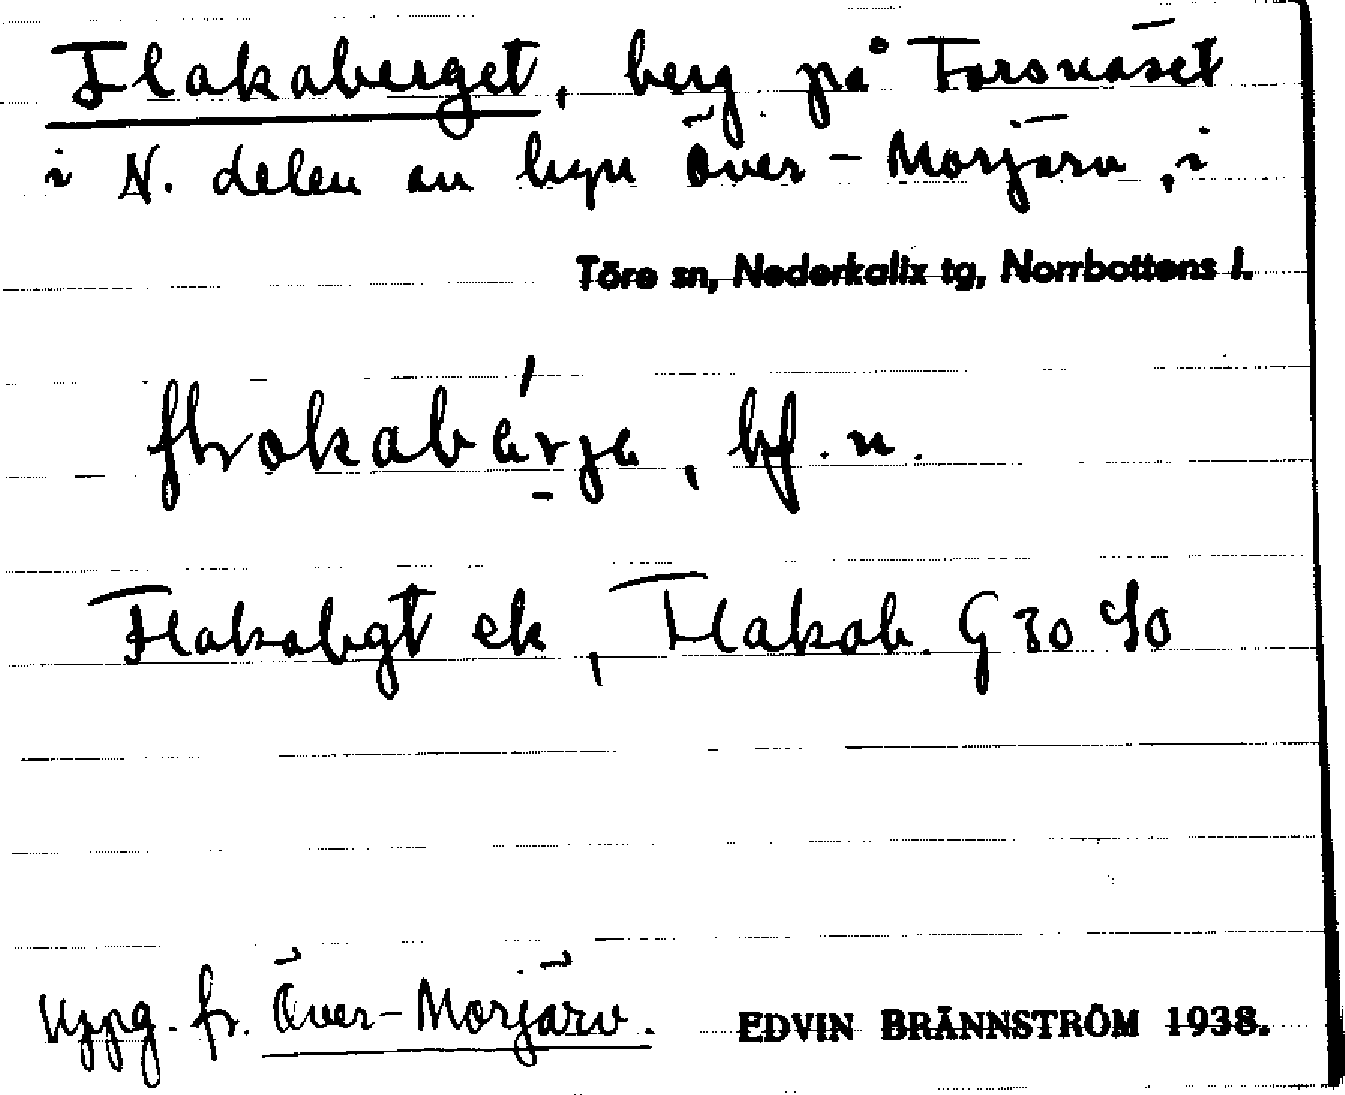 Flakaberget, berg på Forsnäset
i N. delen av byn Över-Morjärv, i
Töre sn, Nederkalix tg, Norrbottens l.
bf. n.
Flakabgt ek, Flakab. G 30 SO
Uppg. fr. Över-Morjärv. EDVIN BRÄNNSTRÖM 1938.